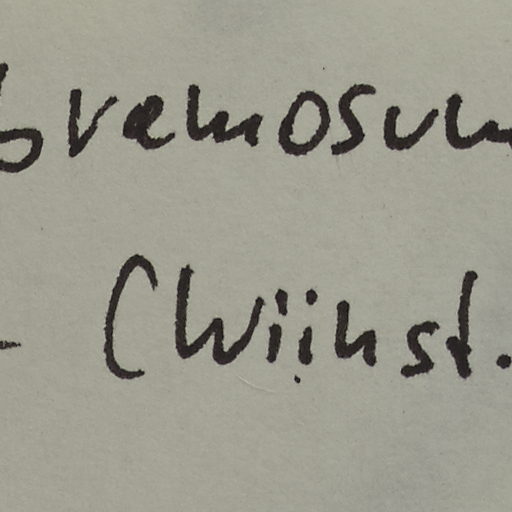 bræmosum
- (Wiinst.